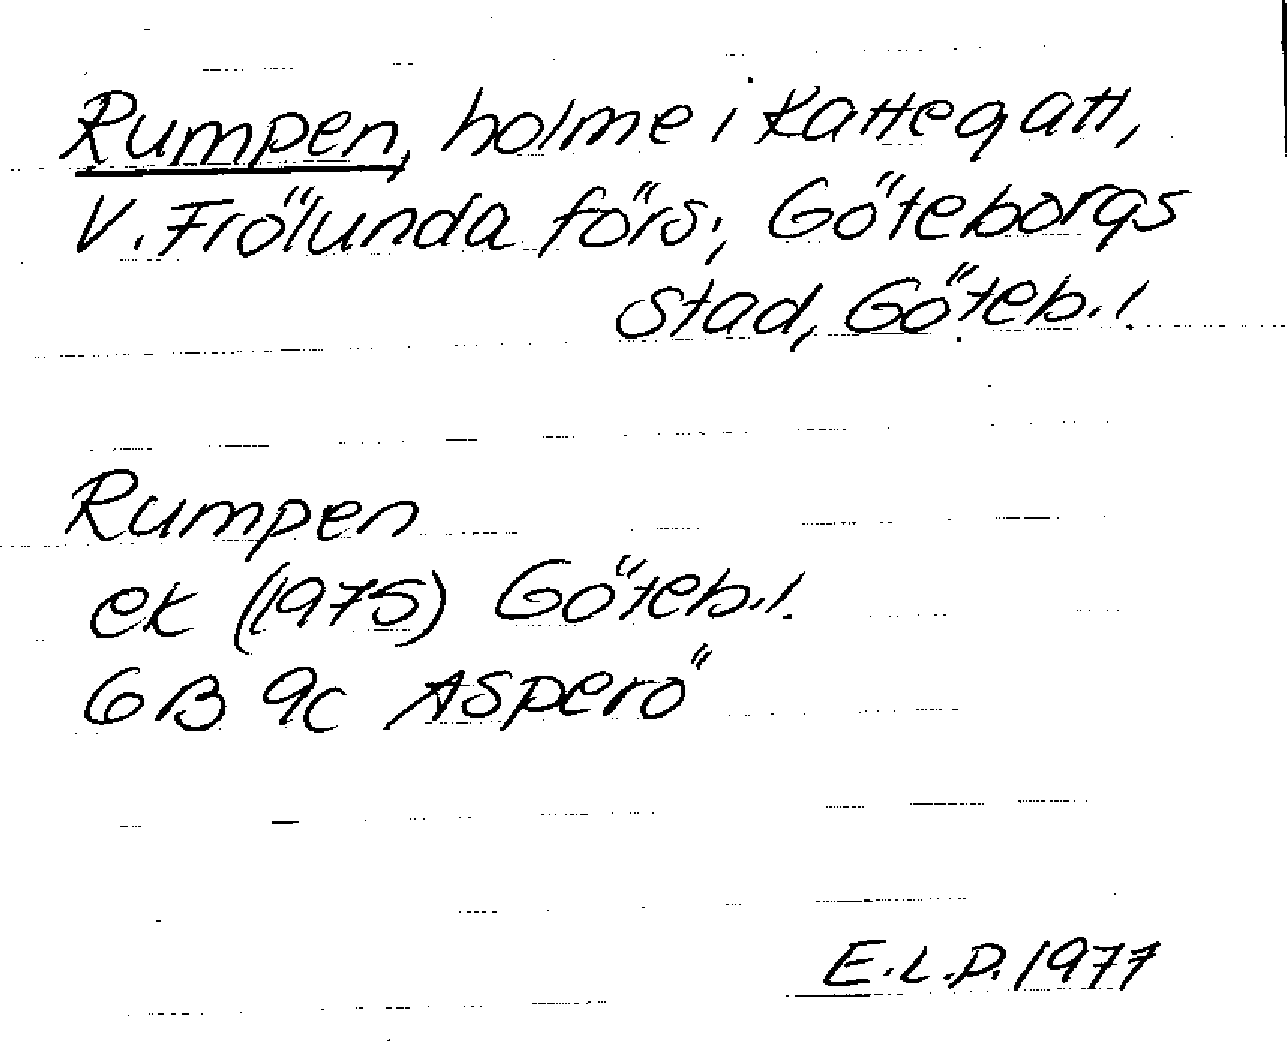 Rumpen, holme i Kattegatt,
V. Frölunda förs., Göteborgs
stad, Göteb. l.
Rumpen
ek (1975) Göteb. l.
6B 9c Asperö
E.L.P. 1977